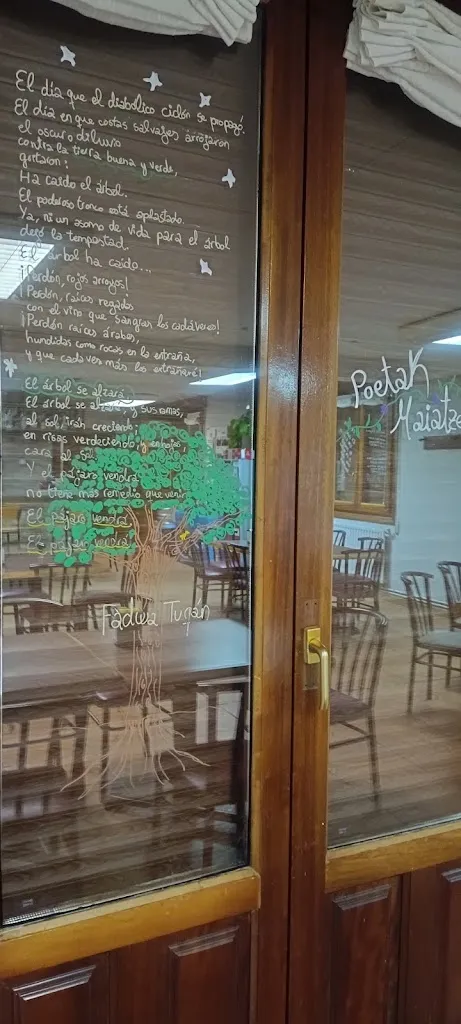 El día que el diabólico ciclón se propagó.
El día en que costas salvajes arrojaron
el oscuro diluvio
contra la tierra buena y verde,
gritaron:
Ha caído el árbol.
El poderoso tronco está aplastado.
Ya, ni un asomo de vida para el árbol
dejó la tempestad.
El árbol ha caído...
¡Perdón, rojos arroyos!
¡Perdón, raíces regadas
con el vino que sangran los cadáveres!
¡Perdón raíces árabes,
hundidas como rocas en la entraña,
y que cada vez más los entrañaré!
El árbol se alzará.
El árbol se alzará, y sus ramas,
al sol, irán creciendo,
en risas verdeciendo, y en hojas,
cara al sol.
Y el pájaro vendrá
no tiene más remedio que venir
El pájaro vendrá
El pájaro vendrá.
Fadwa Tuqán
Poetak
Maiatze